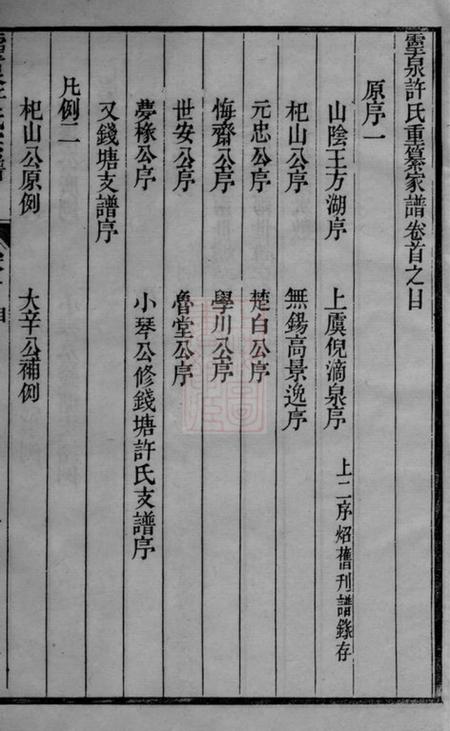 靈泉許氏重纂家譜卷首之目
原序一
山陰王方湖序 上虞倪滴泉序 上二序炤舊刊譜錄存
杞山公序 無錫高景逸序
元忠公序 楚白公序
悔齋公序 學川公序
世安公序 魯堂公序
夢椽公序 小琴公修錢塘許氏支譜序
又錢塘支譜序
凡例二
杞山公原例 大辛公補例